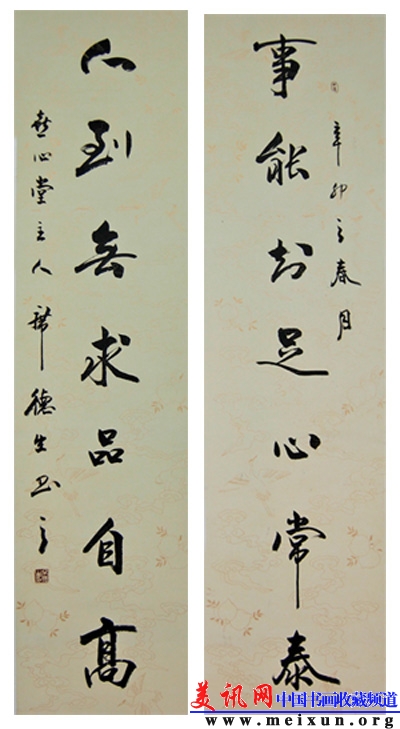 事能知足心常泰
辛卯之春月
人到無求品自高
心堂主人
德生书之
美讯网 中国书画收藏频道
www.meixun.org